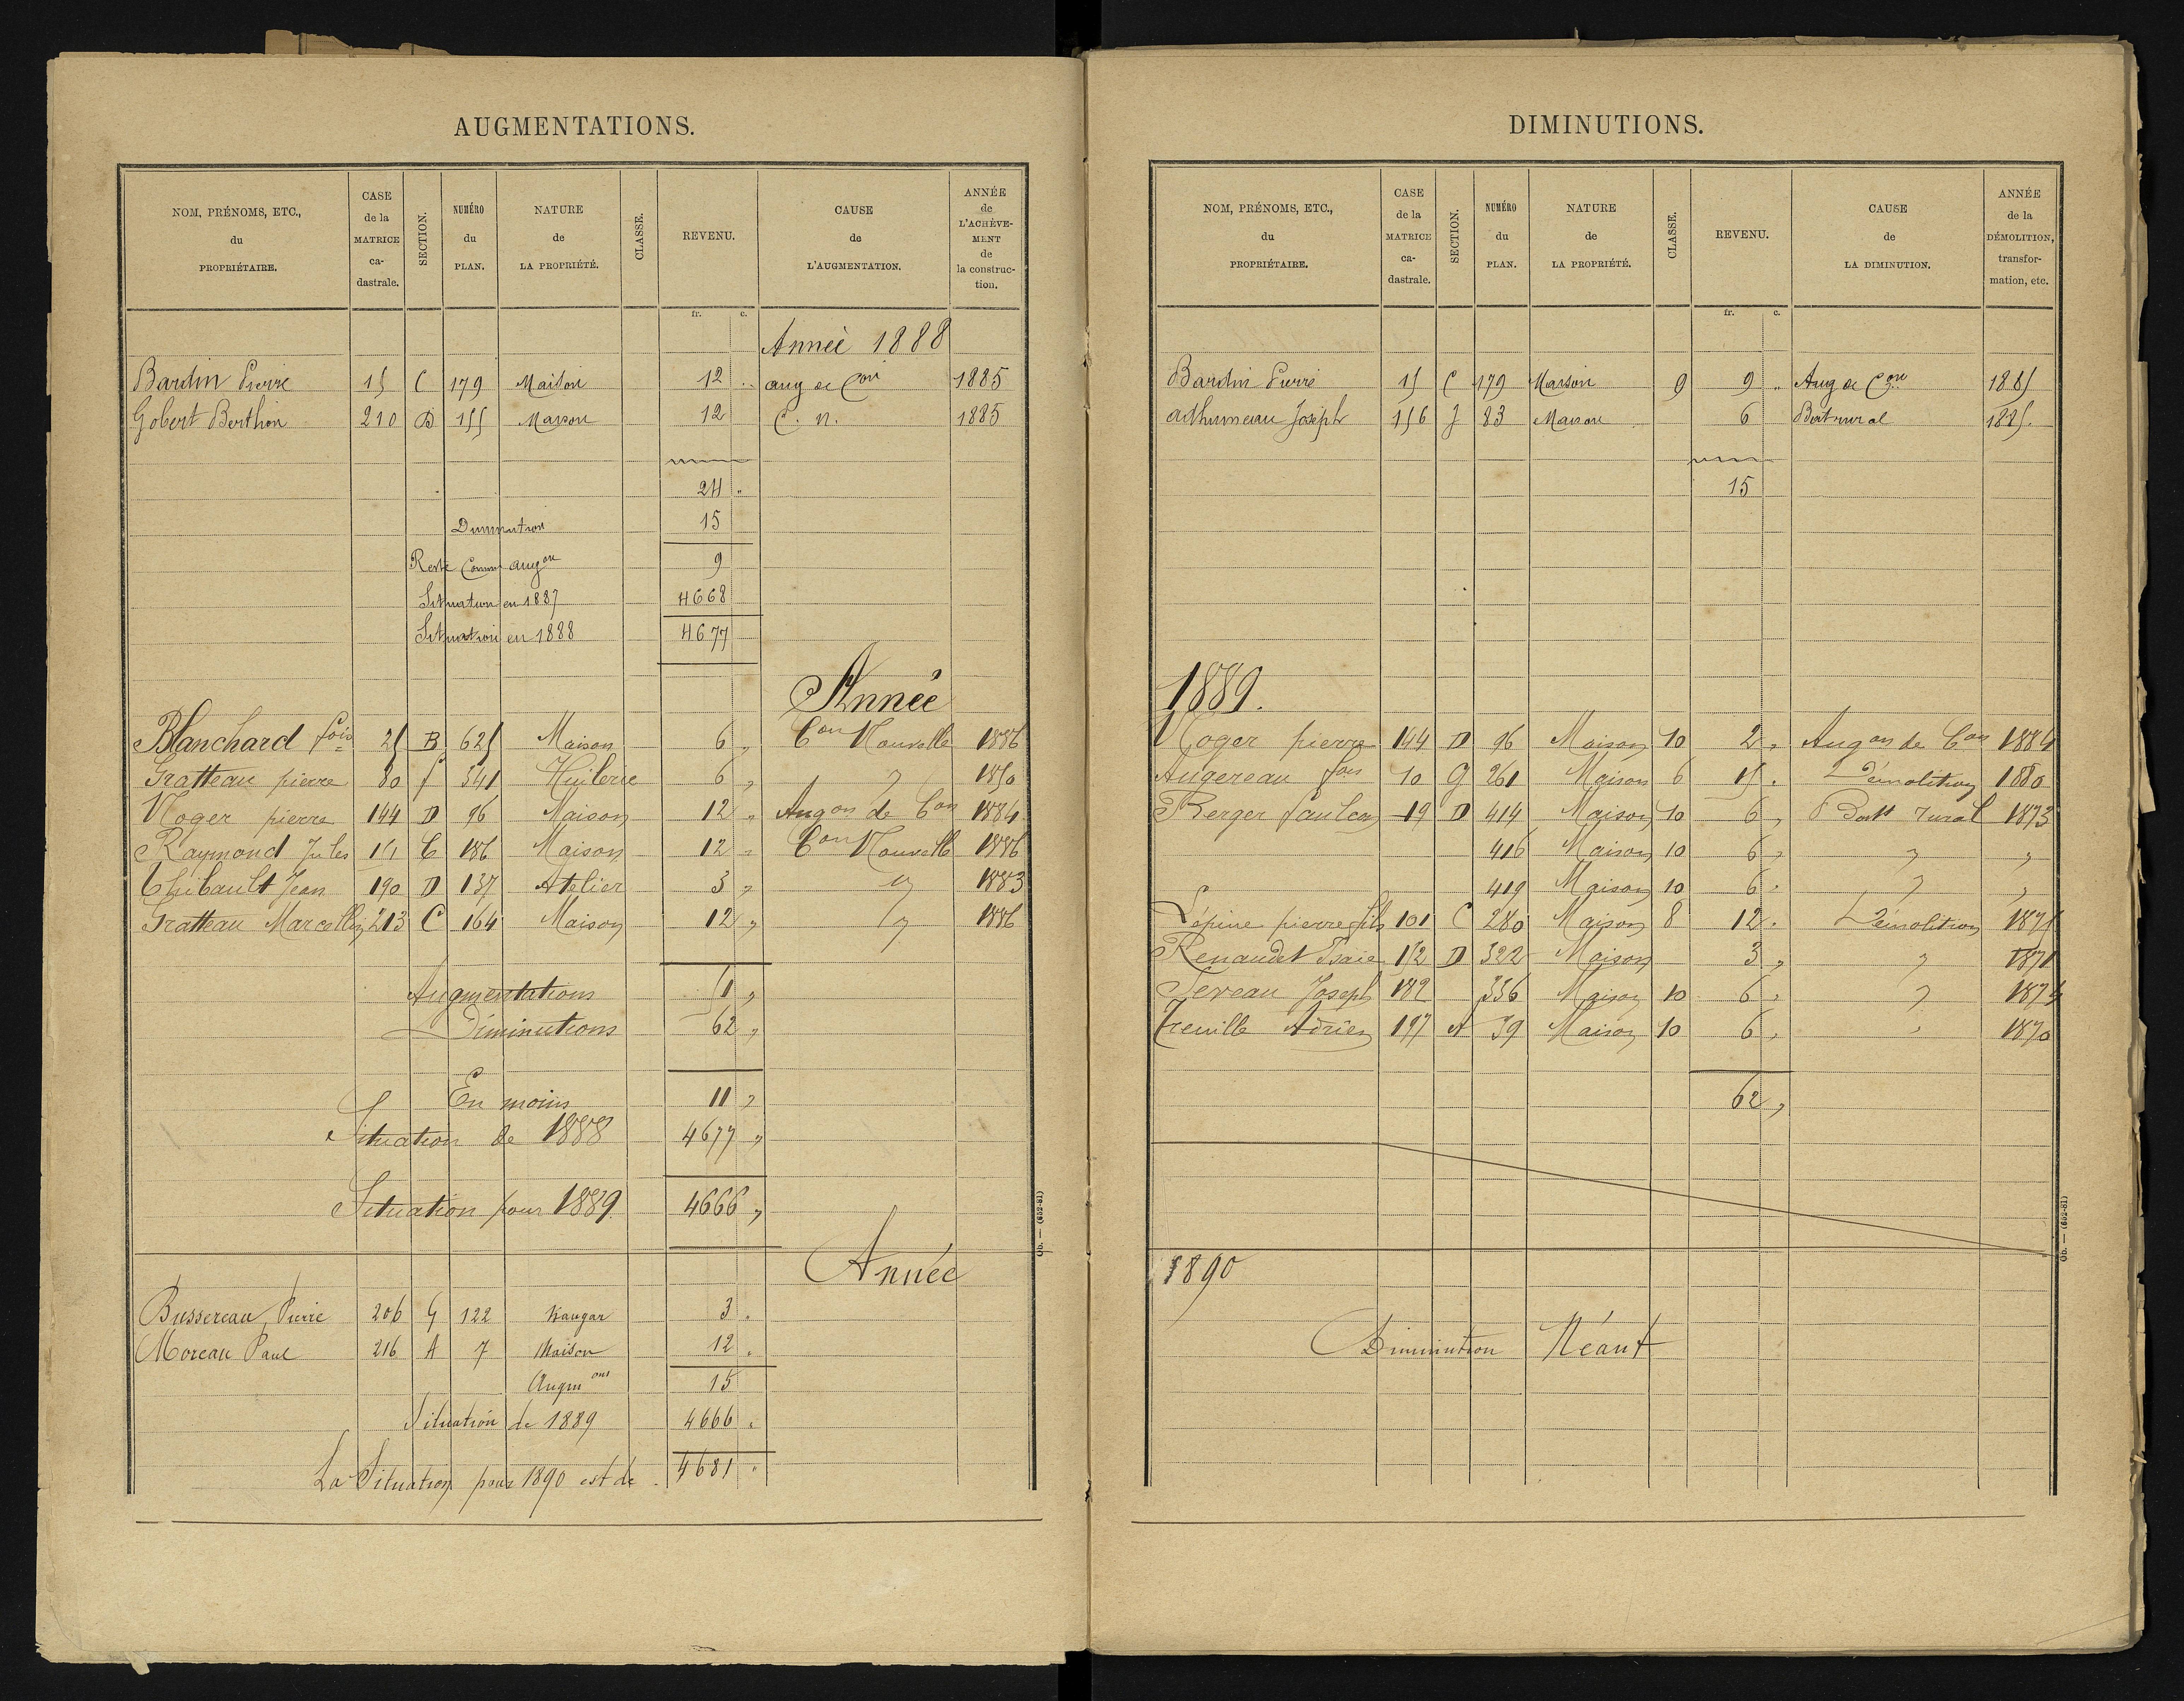 AUGMENTATIONS.
NOM, PRÉNOMS, ETC., du PROPRIÉTAIRE. CASE de la MATRICE ca- dastrale. SECTION. NUMÉRO du PLAN. NATURE de LA PROPRIÉTÉ. CLASSE. REVENU. CAUSE de L'AUGMENTATION. ANNÉE de L'ACHÈVE- MENT de la construc- tion.
fr. c.
Année 1888
Bardin Pierre 15 C 179 Maison 12 .. aug de Con 1885
Gobert Berthon 210 D 155 Maison 12 C. n. 1885
24 ..
Diminution 15
Reste Comme augon 9
Situation en 1887 4668
Situation en 1888 4677
Année
Blanchard fois 25 B 625 Maison 6 " Con Nouvelle 1886
Gratteau pierre 80 f 341 Huilerie 6 " " 1850
Noger pierre 144 D 96 Maison 12 " Augon de Con 1884
Raymond Jules 151 C 186 Maison 12 " Con Nouvelle 1886
Thibault Jean 190 D 137 Atelier 3 " " 1883
Gratteau Marcellin 213 C 164 Maison 12 " " 1886
Augmentations 51 "
Diminutions 62 "
En moins 11 "
Situation de 1888 4677 "
Situation pour 1889 4666 "
Année
Bussereau Pierre 206 G 122 hangar 3 .
Moreau Paul 216 A 7 Maison 12 .
Augmons 15
Situation de 1889 4666 .
La Situation pour 1890 est de 4681 "
Ob. — (652-81)
DIMINUTIONS.
NOM, PRÉNOMS, ETC., du PROPRIÉTAIRE. CASE de la MATRICE ca- dastrale. SECTION. NUMÉRO du PLAN. NATURE de LA PROPRIÉTÉ. CLASSE. REVENU. CAUSE de LA DIMINUTION. ANNÉE de la DÉMOLITION, transfor- mation, etc.
fr. c.
Bardin Pierre 15 C 179 Maison 9 9 .. Aug de Con 1885
adhumeau Joseph 156 J 83 Maison 6 Bat rural 1885.
15
1889.
Noger pierre 144 D 96 Maison 10 2 " Augon de Con 1884
Augereau fois 10 G 261 Maison 6 15 . Démolition 1880
Berger 19 D 414 Maison 10 6 " Batt rural 1873
416 Maison 10 6 " " "
419 Maison 10 6 " " "
Lépine pierre fils 101 C 280 Maison 8 12 . Démolition 1875
Renaudet Isaïe 152 D 322 Maison 3 " " 1871
Tereau Joseph 189 336 Maison 10 6 " " 1874
Treuille Adrien 197 A 39 Maison 10 6 " " 1870
62 "
1890
Diminution Néant
Ob. — (652-81)